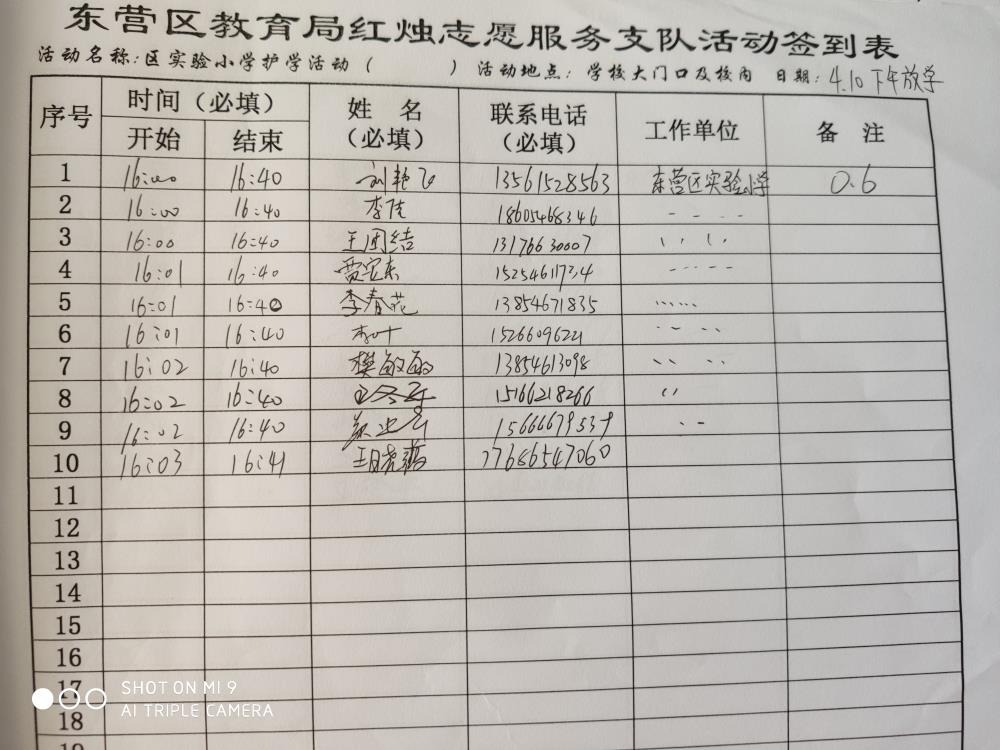 东营区教育局红烛志愿服务支队活动签到表
活动名称:区实验小学护学活动（　　　） 活动地点：学校大门口及校内 日期：4.10 下午放学
序号 时间（必填） 姓 名（必填） 联系电话（必填） 工作单位 备 注
开始 结束
1 16:00 16:40 刘艳飞 13561528563 东营区实验小学 0.6
2 16:00 16:40 李佳 18605468346
3 16:00 16:40 王团结 13176630007
4 16:01 16:40 贾安东 15254611734
5 16:01 16:40 李春花 13854671835
6 16:01 16:40 李叶 15266096221
7 16:02 16:40 樊敏 13854613098
8 16:02 16:40 15166218266
9 16:02 16:40 15666679539
10 16:03 16:41 17686547060
11
12
13
14
15
16
17
18
19
SHOT ON MI 9
AI TRIPLE CAMERA